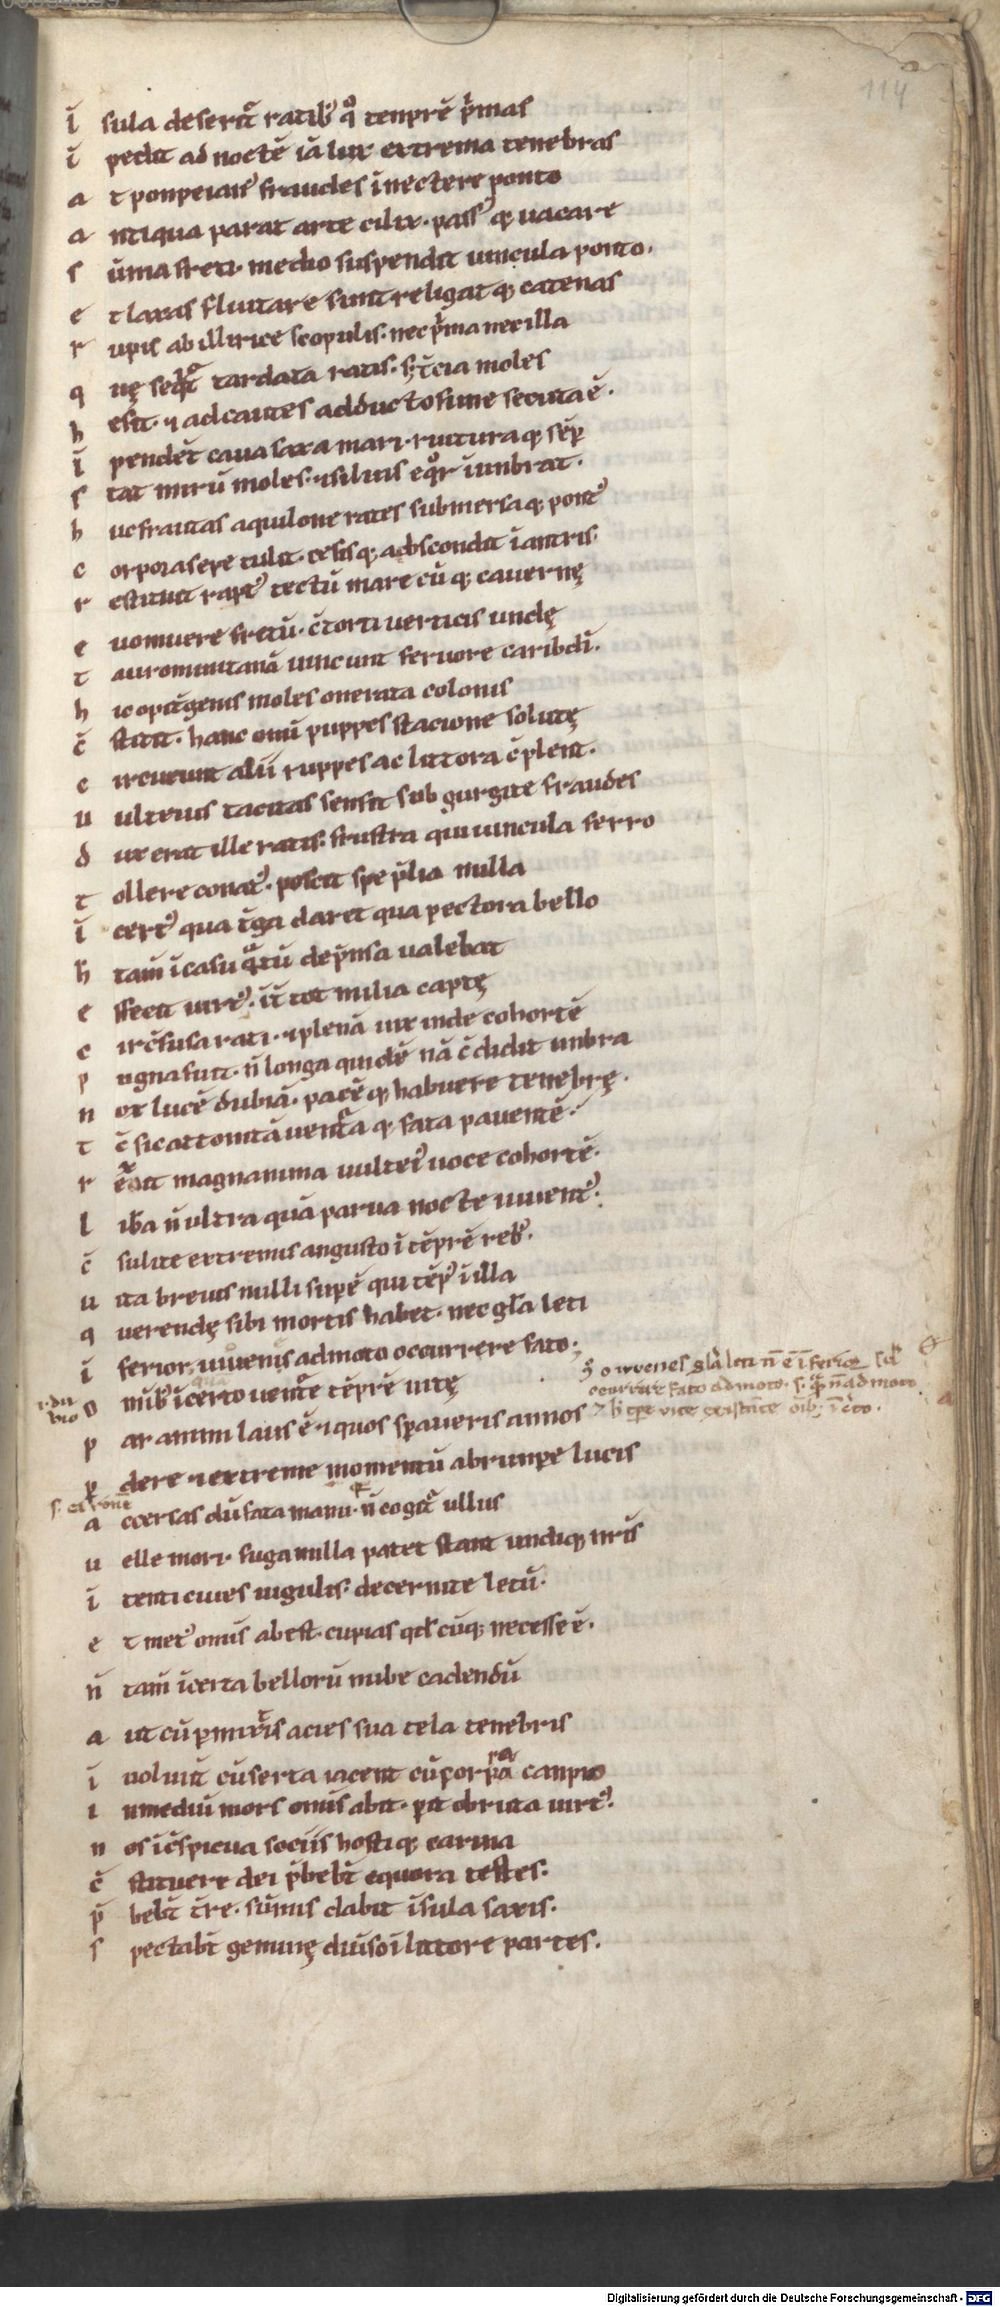 114
ī sula desertᷓ ratibꝰ qͦ tenpre᷒ pͥmas
ī pediit ad noctē iā lux extrema tenebras
a t ponpeianꝰ fraudes īnectere ponto
a ntiqua parat arte cilix · passꝰ qꝫ uacare
s ūma freti · medio suspendit uincula ponto ·
e t laxas fluitare sinit religat qꝫ catenas
r upis ab illirice scopulis · nec pͥma nec illa
q uę seqͥtͬ tardata ratis · sꝫ t̄cia moles
h esit · ⁊ ad cautes adducto fune secuta ē ·
ī pendēt caua saxa mari · ruitura qꝫ sēp̄
s tat mirū moles · ⁊ siluis eqͦr īunbrat ·
h uc fractas aquilone rates submersa qꝫ pontꝰ
c orpora sepe tulit · cesis qꝫ abscondit ī antris
r estituit raptꝰ tectū mare cū qꝫ cauernę
e uomuere fretū · c̄torti uerticis undę
t auromintanā uincunt feruore caribdī ·
h ic opit̄genis moles onerata colonis
c̄ stitit · hanc omī puppes stacione solutę
c ircueunt alii ruppes ac littora c̄plent ·
u ulteius tacitas sensit sub gurgite fraudes
d ux erat ille ratis · frustra qui uincula ferro
t ollere conatꝰ · poscit spe p̄lia nulla
ī certꝰ qua t̄ga daret qua pectora bello
h̄ tam̄ ī casu qͣtū dep̄nsa ualebat
e ffecit uirtꝰ · īt̄ tot milia captę
c irc̄fusa rati · ⁊ plenā uix inde cohortē
p ugna fuit · n̄ longa quidē nā c̄didit unbra
n ox lucē dubiā · pacē qꝫ habuere tenebrę ·
t c̄ sic attonitā uentͬa qꝫ fata pauentē ·
r exit magnanima uulteiꝰ uoce cohortē ·
l ib̄a n̄ ultra quā parua nocte iuuentꝰ ·
c̄ sulite extremis angusto ī tēpre᷒ rebꝰ ·
u ita breuis nulli supē qui tēpꝰ ī illa
q uerendę sibi mortis habet · nec gl̄a leti
ī ferior iuuenis admoto occurrere fato ·
o mībꝰ īcerto uentͬe tēpre᷒ uitę
p ar animi laus ē · ⁊ quos sp̄aueris annos
ꝑ dere · ⁊ extreme momentū abrunpere lucis
a ccersas dū fata manu · n̄ cogitͬ ullus
u elle mori · fuga nulla patet stant undiqꝫ nr̄is
ī tenti ciues iugulis · decernite letū ·
e t metꝰ omis abest · cupias qd̄ cūqꝫ necesse ē ·
n̄ tam̄ īcerta bellorū nube cadendū
a ut cū ꝑmixtis acies sua tela tenebris
ī uoluūt cū serta iacent cū corpora canpo
ı n mediū mors omīs abit · ꝑit obruta uirtꝰ ·
n os ī c̄spicua sociis hostiqꝫ carina
c̄ stituere dei p̄bebt̄ equora testes ·
p̄ bebt̄ t̄re · sūmis dabit īsula saxis ·
s pectabt̄ geminę diuiso ī littore partes ·
o iuuenes gl̄a leti n̄ ē īferior
occurrere fato admoto · s ·
Digitalisierung gefördert durch die Deutsche Forschungsgemeinschaft - DFG